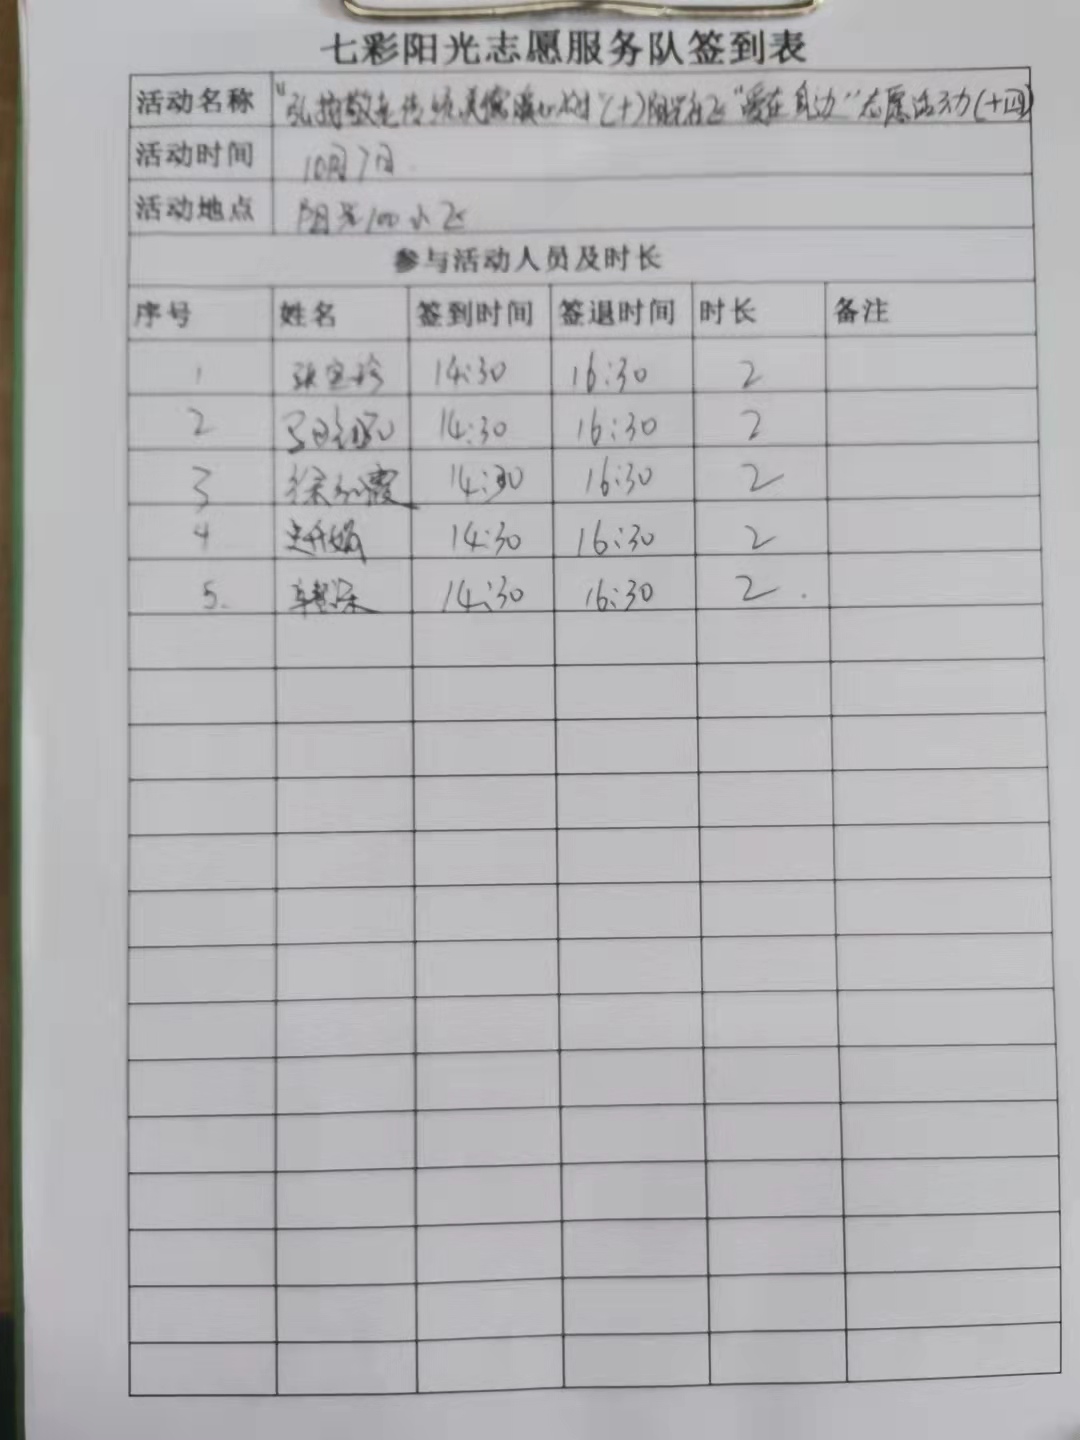 七彩阳光志愿服务队签到表
活动名称 "弘扬敬老传统 (十) 阳光社区"爱在身边"志愿活动(十四)
活动时间 10月7日
活动地点 阳光100小区
参与活动人员及时长
序号 姓名 签到时间 签退时间 时长 备注
1 张宝珍 14:30 16:30 2
2 14:30 16:30 2
3 徐 霞 14:30 16:30 2
4 史 娟 14:30 16:30 2
5. 14:30 16:30 2.